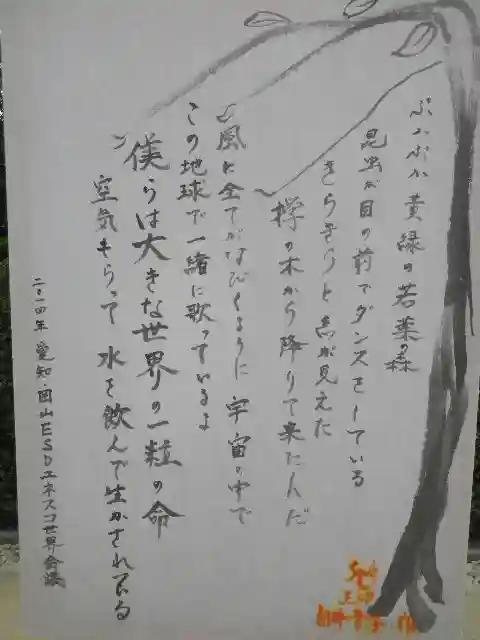 ぷかぷか黄緑の若葉の森
昆虫が目の前でダンスをしている
きらきらと糸が見えた
欅の木から降りて来たんだ
風に全てがなびくように宇宙の中で
この地球で一緒に歌っているよ
僕らは大きな世界の一粒の命
空気もらって水を飲んで生かされている
二〇一四年 愛知・岡山ESDユネスコ世界会議